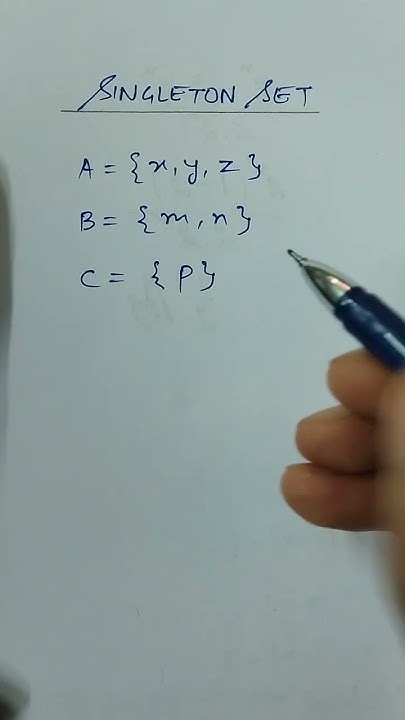 SINGLETON SET
A = {x, y, z}
B = {m, n}
C = {P}